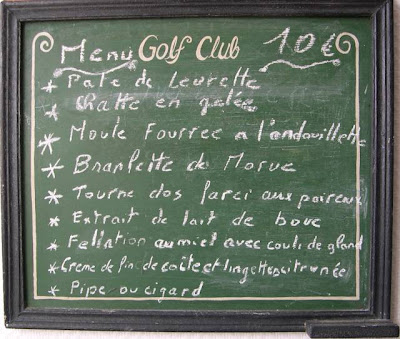 Menu Golf Club 10€
* Paté de Levrette
* Chatte en gelée
* Moule Fourrée a l'andouillette
* Branlette de Morue
* Tourne dos farci aux poireaux
* Extrait de lait de bouc
* Fellation au miel avec coulis de gland
* Crème de fin de coïte et lingettes citronnée
* Pipe ou cigard